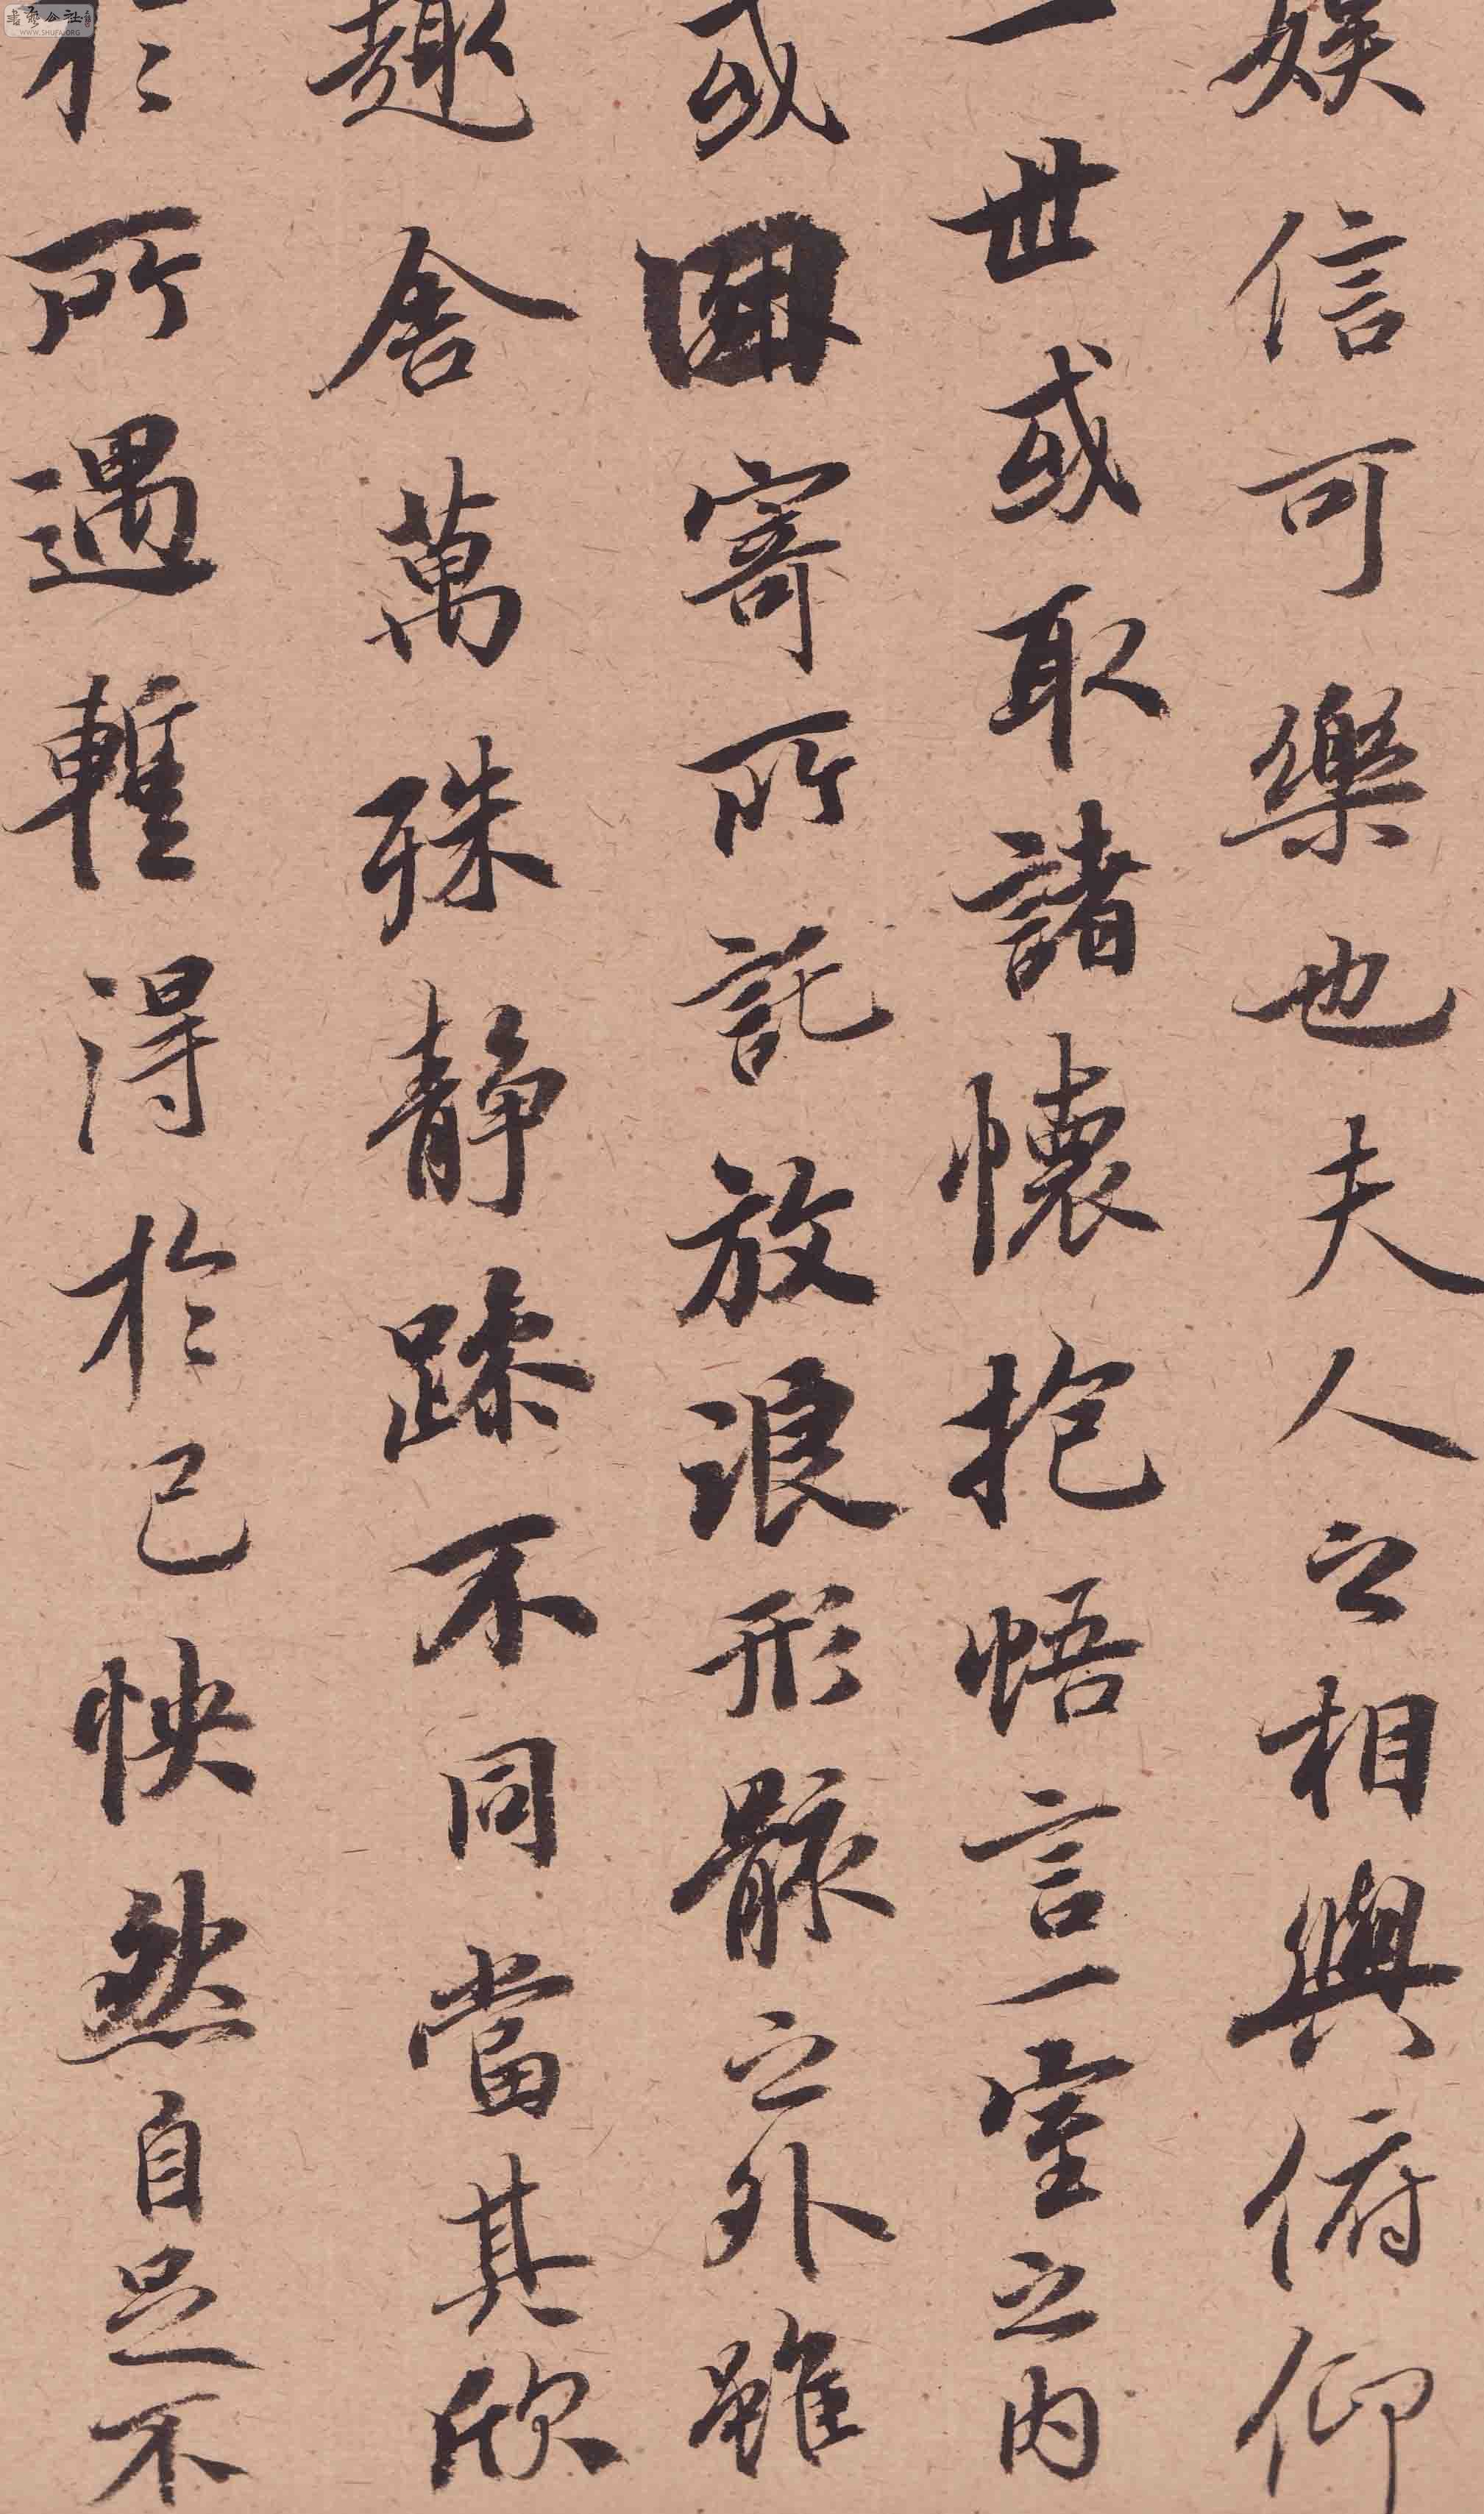 娱信可樂也夫人之相與俯仰
一世或取諸懷抱悟言一室之内
或因寄所託放浪形骸之外雖
趣舍萬殊静躁不同當其欣
於所遇蹔得於己怏然自足不
WWW.SHUFA.ORG